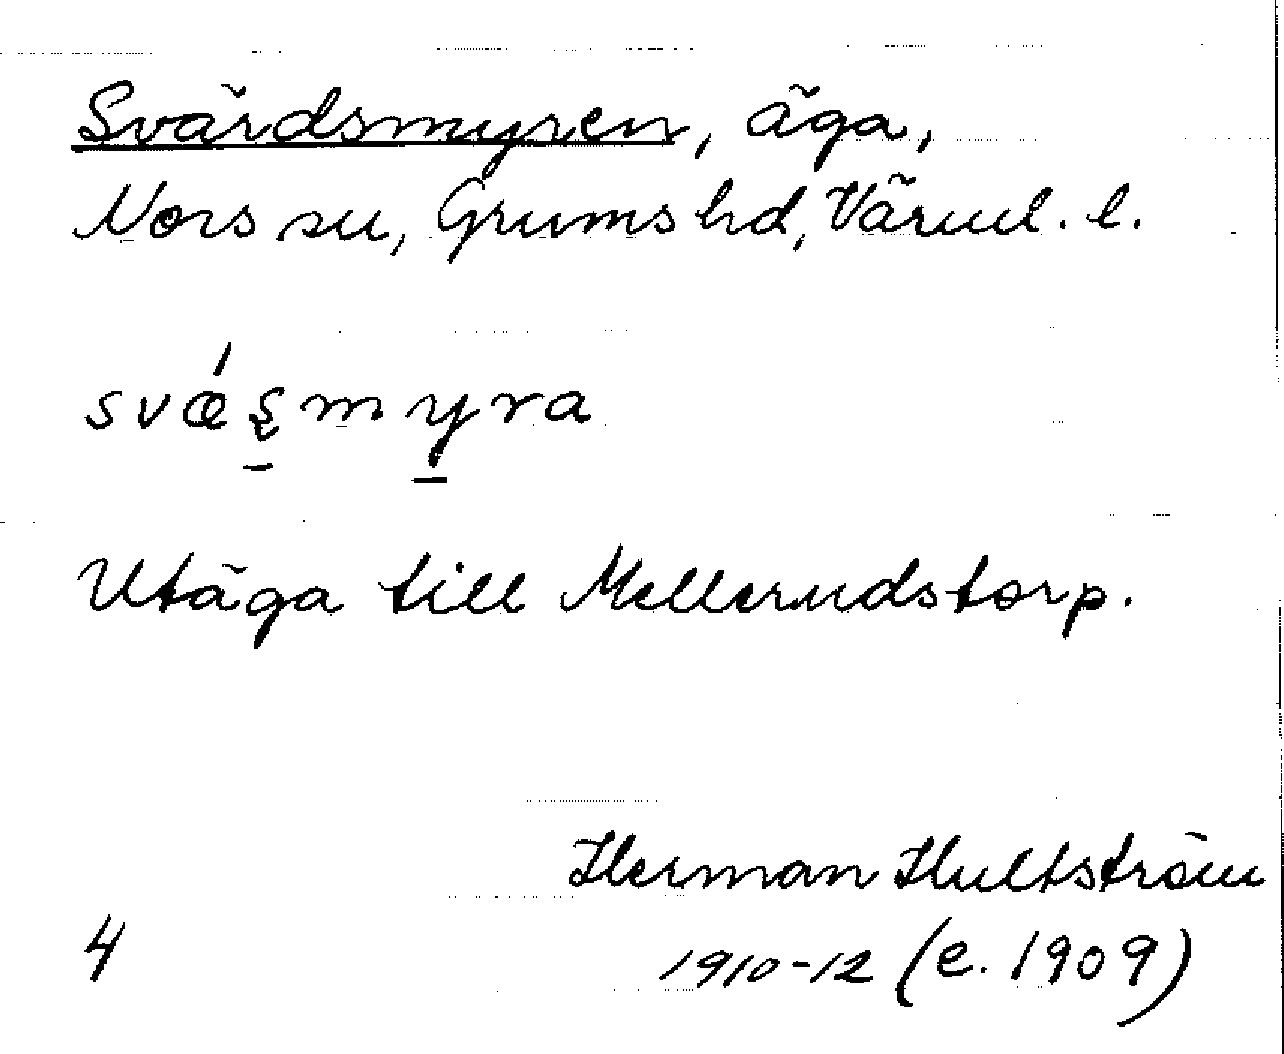 Svärdsmyren, äga,
Nors sn, Grums hd, Värml. l.
svǽʂmyra
Utäga till Mellerudstorp.
Herman Hultström
4 1910-12 (e. 1909)